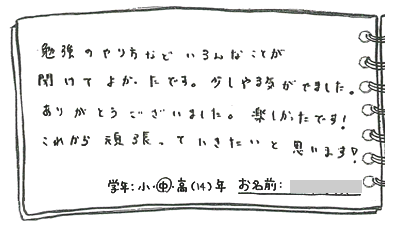 勉強のやり方などいろんなことが
聞けてよかったです。少しやる気がでました。
ありがとうございました。楽しかったです!
これから頑張っていきたいと思います!
学年:小・中・高(14)年 お名前: